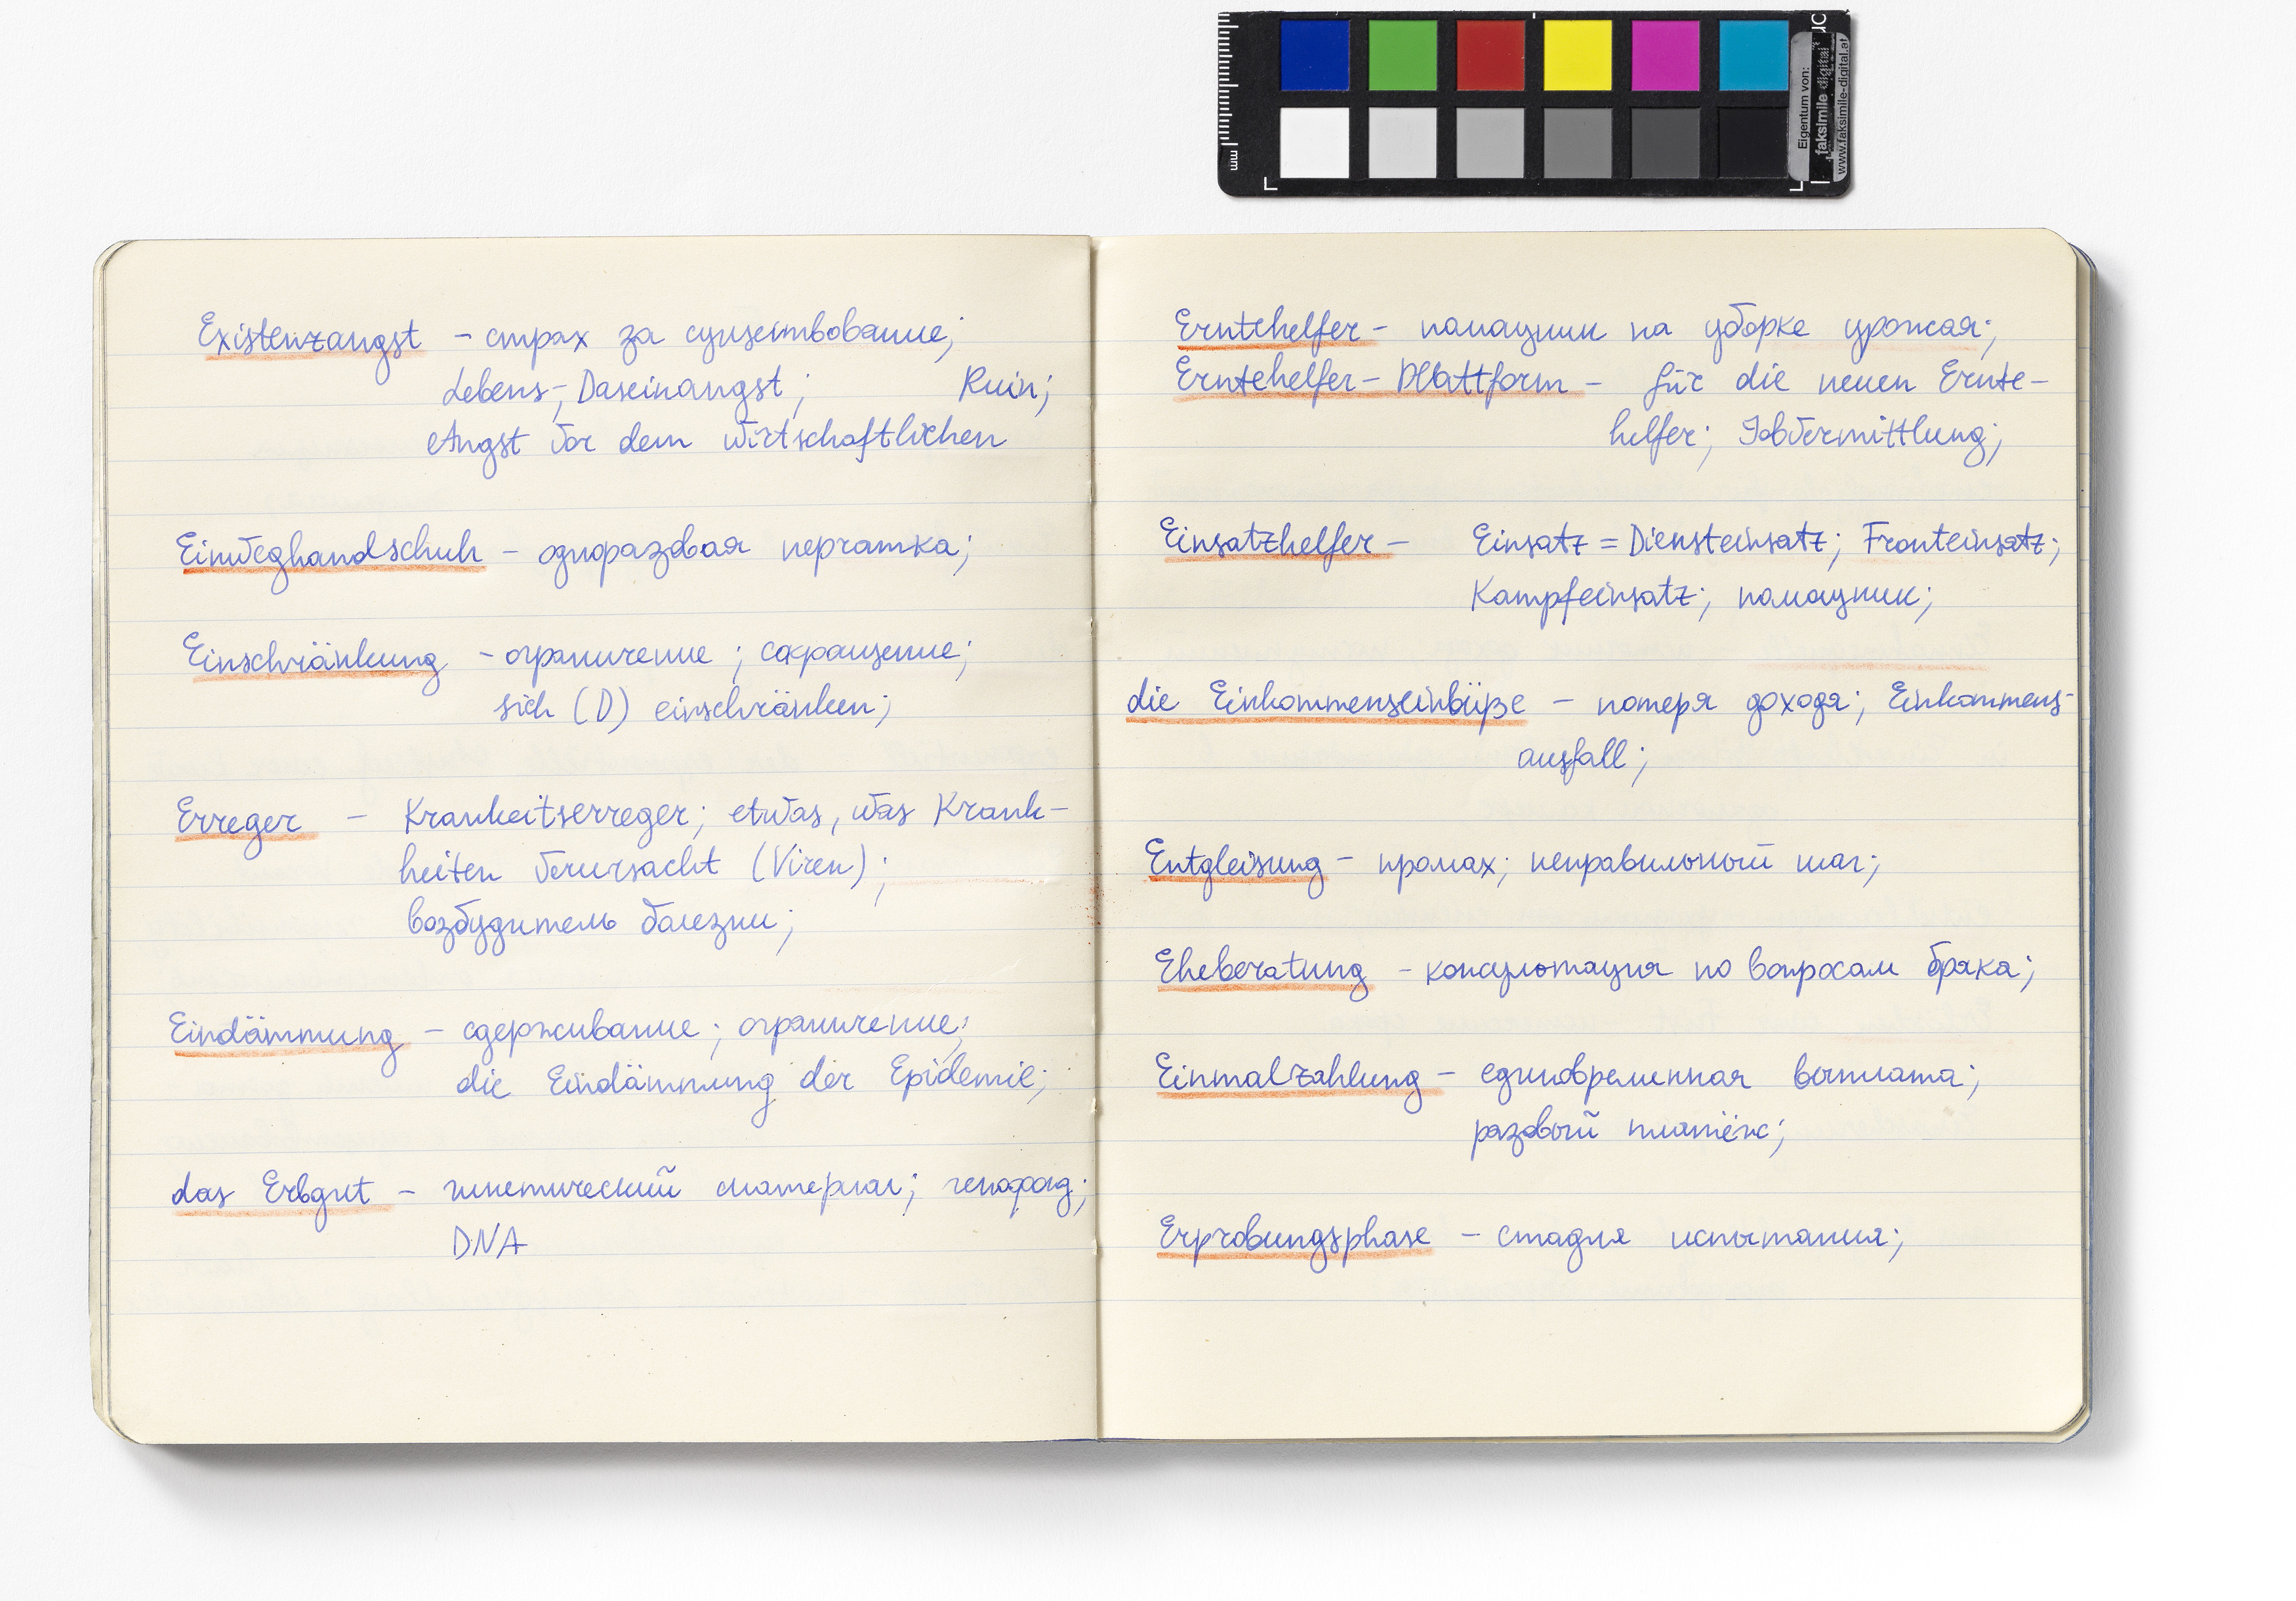 Existenzangst – страх за существование;
Lebens-, Daseinangst; Ruin;
Angst vor dem wirtschaftlichen
Einweghandschuh – одноразовая перчатка;
Einschränkung – ограничение; сокращение;
sich (D) einschränken;
Erreger – Krankeitserreger; etwas, was Krank-
heiten verursacht (Viren);
возбудитель болезни;
Eindämmung – сдерживание; ограничение;
die Eindämmung der Epidemie;
das Erbgut – генетический материал; генофонд;
DNA
Erntehelfer – помощник на уборке урожая;
Erntehelfer-Plattform – für die neuen Ernte-
helfer; Jobvermittlung;
Einsatzhelfer – Einsatz = Diensteinsatz; Fronteinsatz;
Kampfeinsatz; помощник;
die Einkommenseinbüße – потеря дохода; Einkommens-
ausfall;
Entgleisung – промах; неправильный шаг;
Eheberatung – консультация по вопросам брака;
Einmalzahlung – единовременная выплата;
разовый платёж;
Erprobungsphase – стадия испытания;
mm
Eigentum von:
faksimile digital
www.faksimile-digital.at